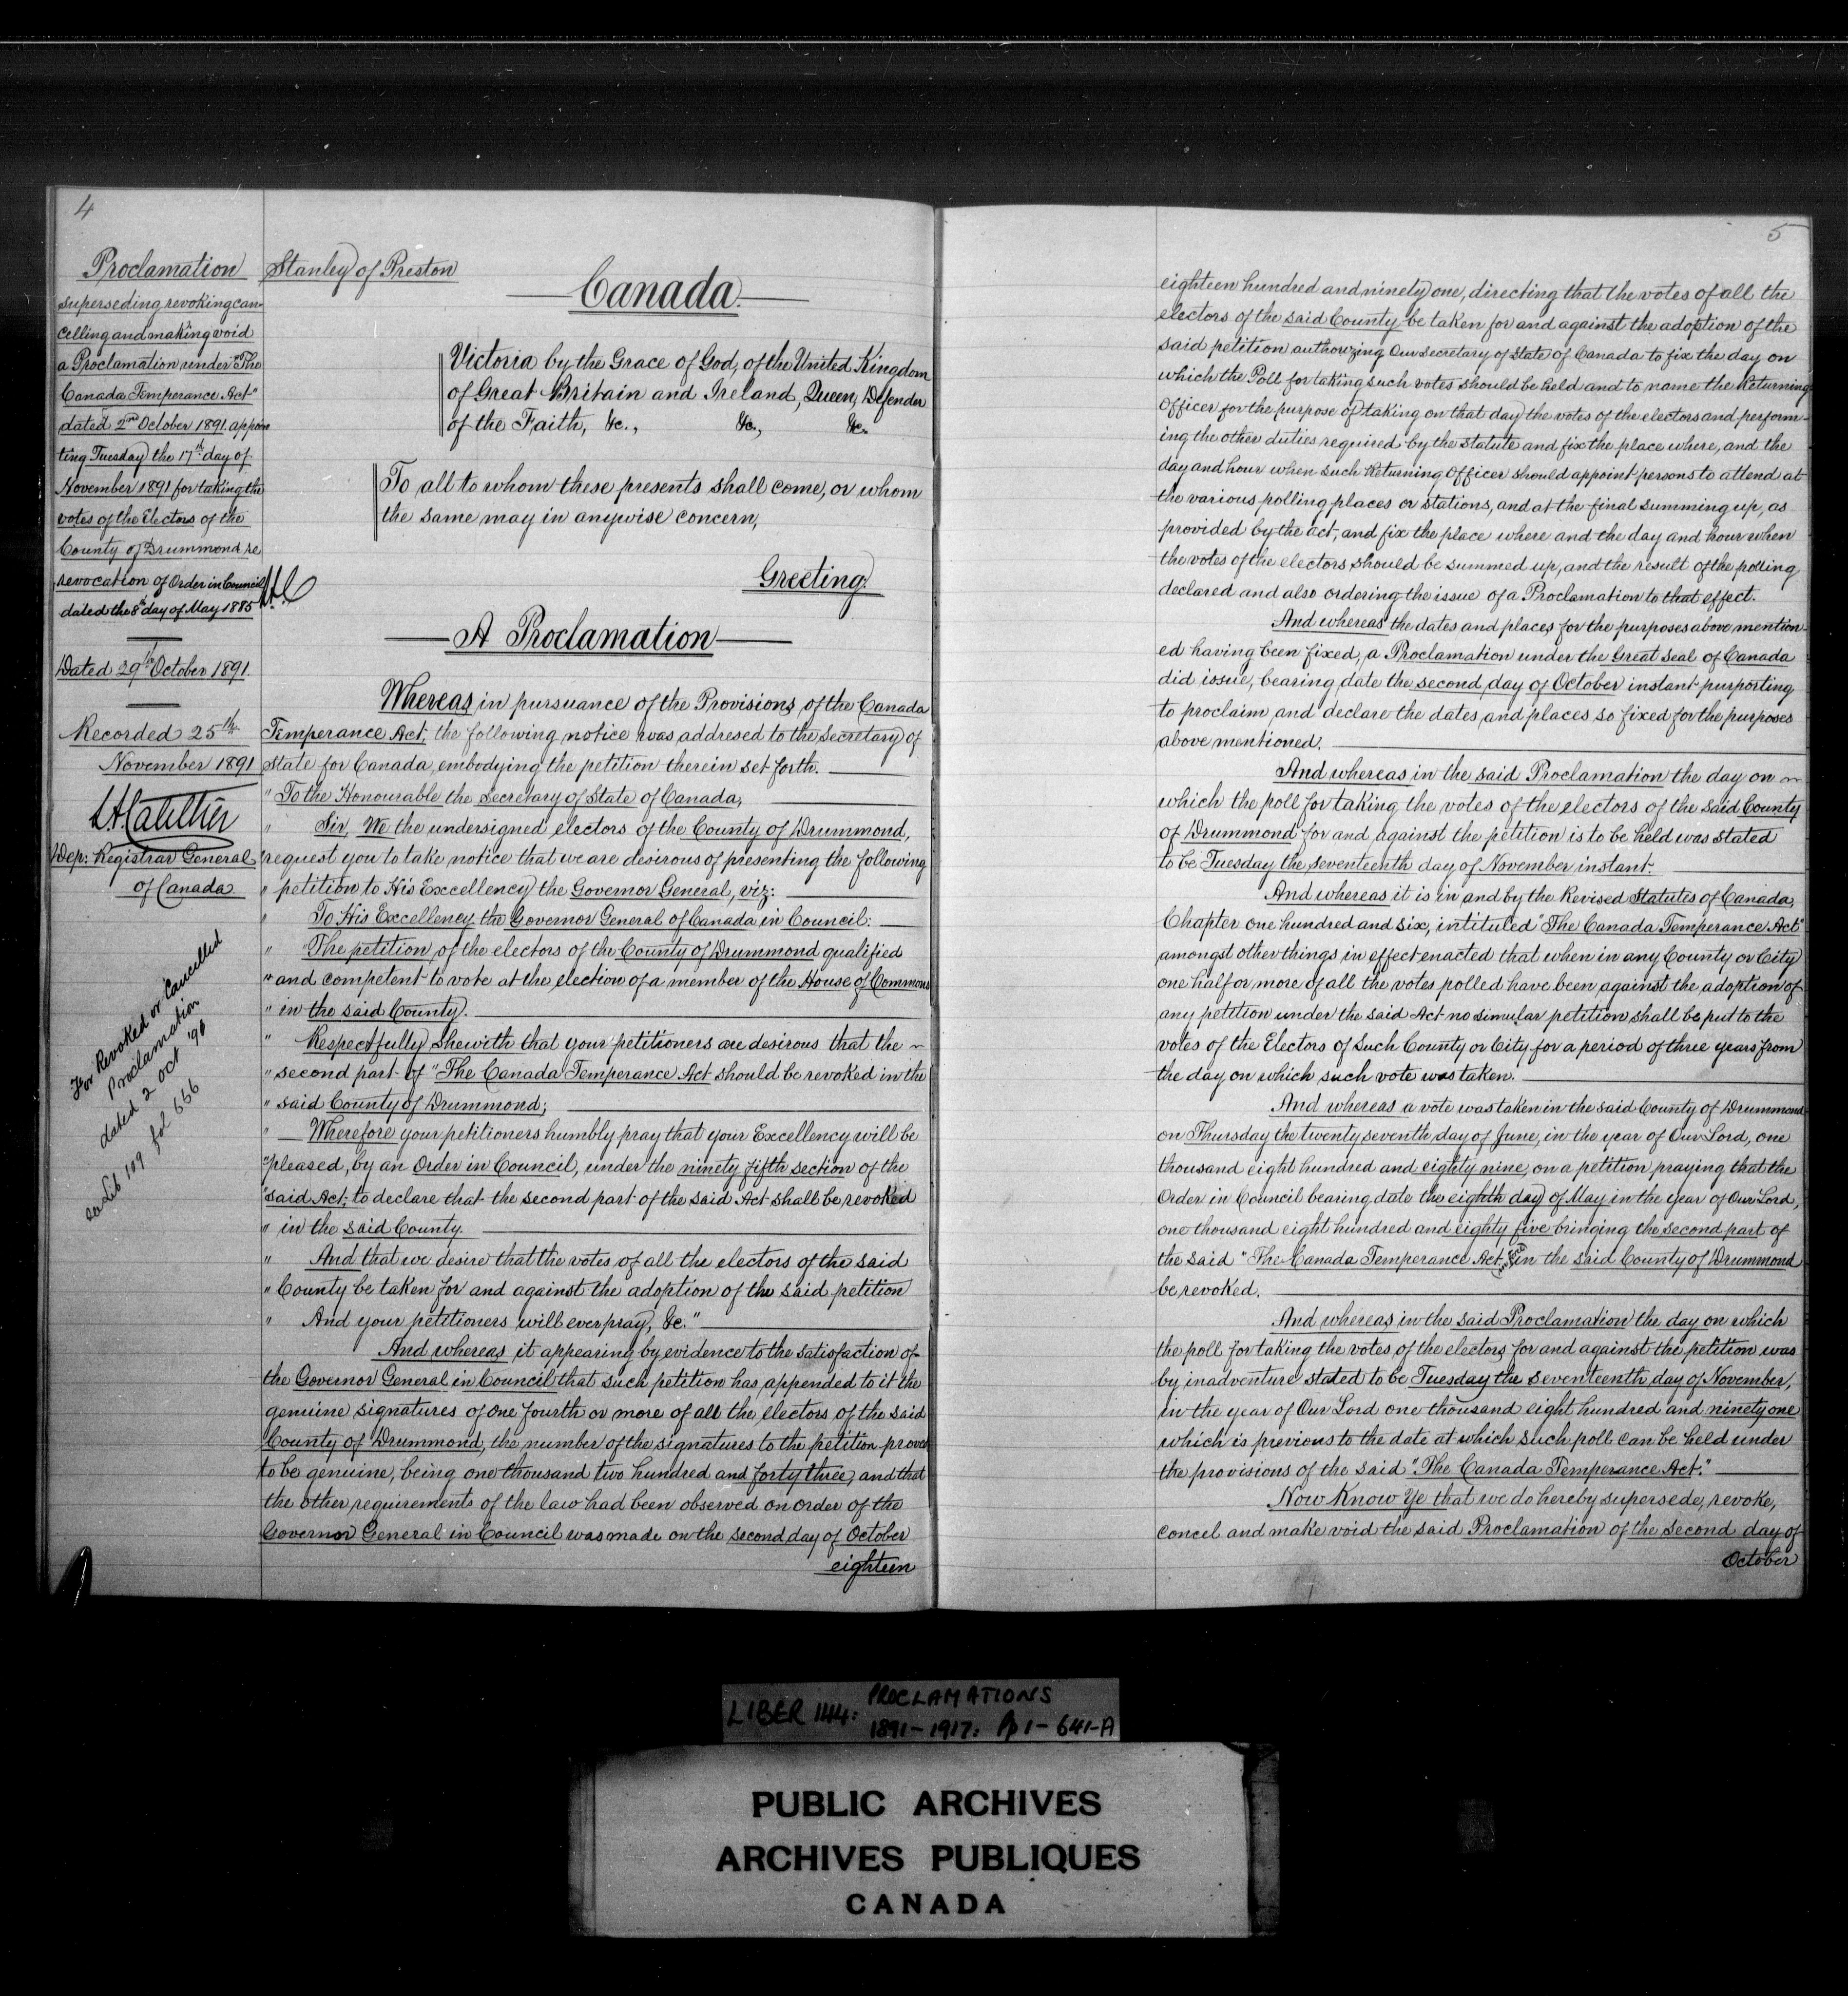 4
Proclamation
superseding, revoking can-
celling and making void
a Proclamation under "The
Canada Temperance Act"
dated 2nd October 1891 appoin
ting Tuesday the 17th day of
November 1891 for taking the
votes of the Electors of the
County of Drummond re
revocation of Order in Council
dated the 8th day of May 1885
Dated 29th October 1891.
Recorded 25th
November 1891
Dep: Registrar General
of Canada
For Revoked or Cancelled
Proclamation
dated 2 oct '91
see Lib 109 fol 666
Stanley of Preston
Canada
Victoria by the Grace of God, of the United Kingdom
of Great Britain and Ireland, Queen, Defender
of the Faith, &c., &c., &c.
To all to whom these presents shall come, or whom
the same may in anywise concern,
Greeting:
A Proclamation
Whereas in pursuance of the Provisions of the Canada
Temperance Act, the following notice was addresed to the Secretary of
State for Canada, embodying the petition therein set forth.
" To the Honourable the Secretary of State of Canada,
" Sir, We the undersigned electors of the County of Drummond,
"request you to take notice that we are desirous of presenting the following
" petition to His Excellency the Governor General, viz:
" To His Excellency the Governor General of Canada in Council:
" "The petition of the electors of the County of Drummond qualified
" and competent to vote at the election of a member of the House of Commons
" in the said County.
" Respectfully sheweth that your petitioners are desirous that the
" second part of "The Canada Temperance Act should be revoked in the
" said County of Drummond;
" Wherefore your petitioners humbly pray that your Excellency will be
"pleased, by an Order in Council, under the ninety fifth section of the
"said Act, to declare that the second part of the said Act shall be revoked
" in the said County.
" And that we desire that the votes of all the electors of the said
" County be taken for and against the adoption of the said petition
" And your petitioners will ever pray, &c."
And whereas it appearing by evidence to the satisfaction of
the Governor General in Council that such petition has appended to it the
genuine signatures of one fourth or more of all the electors of the said
County of Drummond, the number of the signatures to the petition proved
to be genuine, being one thousand two hundred and forty three, and that
the other requirements of the law had been observed an order of the
Governor General in Council was made on the second day of October
eighteen
5
eighteen hundred and ninety one, directing that the votes of all the
electors of the said County be taken for and against the adoption of the
said petition authorizing Our Secretary of State of Canada to fix the day on
which the Poll for taking such votes should be held and to name the Returning
Officer for the purpose of taking on that day the votes of the electors and perform-
ing the other duties required by the statute and fix the place where, and the
day and hour when such Returning Officer should appoint persons to attend at
the various polling places or stations, and at the final summing up, as
provided by the act, and fix the place where and the day and hour when
the votes of the electors should be summed up, and the result of the polling
declared and also ordering the issue of a Proclamation to that effect.
And whereas the dates and places for the purposes above mention-
ed having been fixed, a Proclamation under the Great Seal of Canada
did issue, bearing date the second day of October instant purporting
to proclaim and declare the dates and places so fixed for the purposes
above mentioned.
And whereas in the said Proclamation the day on
which the poll for taking the votes of the electors of the said County
of Drummond for and against the petition is to be held was stated
to be Tuesday the seventeenth day of November instant.
And whereas it is in and by the Revised Statutes of Canada,
Chapter one hundred and six, intituled "The Canada Temperance Act"
amongst other things in effect enacted that when in any County or City
one half or more of all the votes polled have been against the adoption of
any petition under the said Act no simular petition shall be put to the
votes of the Electors of such County or City for a period of three years from
the day on which such vote was taken.
And whereas a vote was taken in the said County of Drummond
on Thursday the twenty seventh day of June, in the year of Our Lord, one
thousand eight hundred and eighty nine, on a petition praying that the
Order in Council bearing date the eighth day of May in the year of Our Lord,
one thousand eight hundred and eighty five bringing the second part of
the said "The Canada Temperance Act in the said County of Drummond
be revoked.
And whereas in the said Proclamation the day on which
the poll for taking the votes of the electors for and against the petition was
by inadventure stated to be Tuesday the seventeenth day of November,
in the year of Our Lord one thousand eight hundred and ninety one
which is previous to the date at which such poll can be held under
the provisions of the said "The Canada Temperance Act."
Now Know Ye that we do hereby supersede, revoke,
concel and make void the said Proclamation of the second day of
October
LIBER 144: PROCLAMATIONS
1891-1917: Pp 1-641-A
PUBLIC ARCHIVES
ARCHIVES PUBLIQUES
CANADA